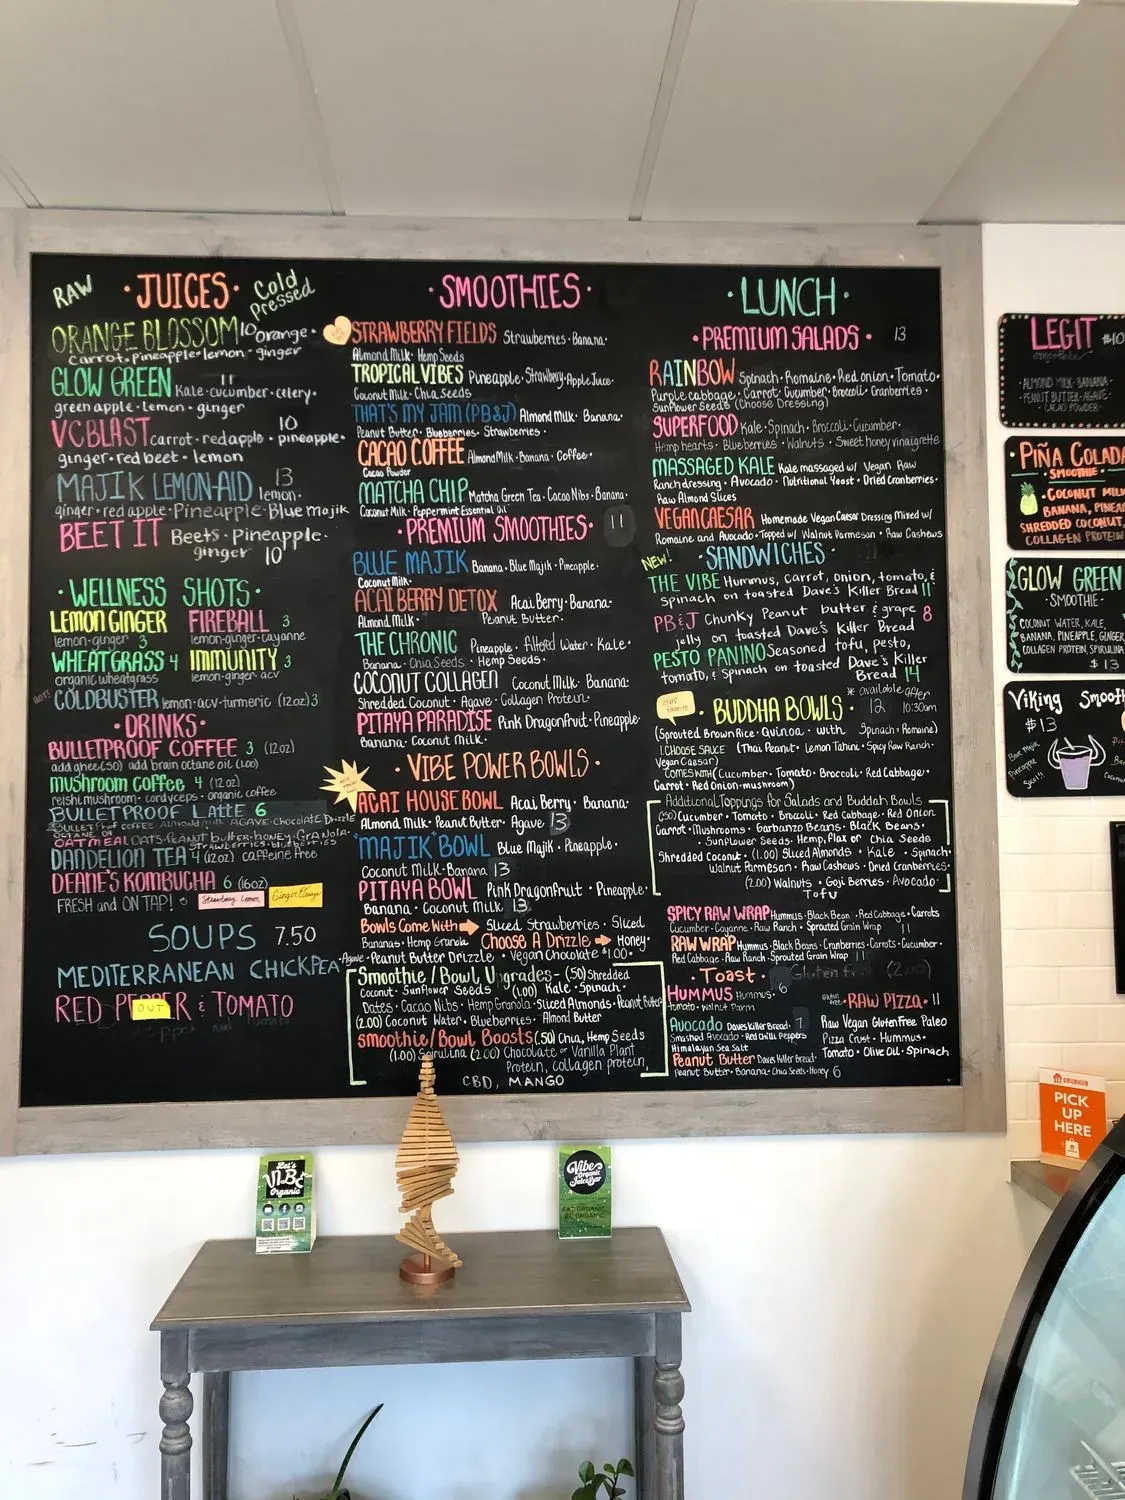 RAW
·JUICES·
Cold Pressed
ORANGE BLOSSOM 10 orange·
carrot·pineapple·lemon·ginger
GLOW GREEN 11 Kale·cucumber·celery·
green apple·lemon·ginger
VC BLAST 10 carrot·red apple·pineapple·
ginger·red beet·lemon
MAJIK LEMON-AID 13 lemon·
ginger·red apple·Pineapple·Blue majik
BEET IT Beets·Pineapple·
ginger 10
·WELLNESS SHOTS·
LEMON GINGER
lemon-ginger 3
FIREBALL 3
lemon-ginger-cayanne
WHEATGRASS 4
organic wheatgrass
IMMUNITY 3
lemon-ginger-acv
HOT!
COLDBUSTER lemon-acv-turmeric (12oz) 3
·DRINKS·
BULLETPROOF COFFEE 3 (12oz)
add ghee (.50) add brain octane oil (1.00)
mushroom coffee 4 (12oz)
reishi mushroom·cordyceps·organic coffee
BULLETPROOF LATTE 6
OATMEAL OATS·PEANUT butter·honey·GRANOLA·
strawberries·blueberries
DANDELION TEA 4 (12oz) caffeine free
DEANE'S KOMBUCHA 6 (16oz)
FRESH and ON TAP!
Strawberry Lemon
SOUPS 7.50
MEDITERRANEAN CHICKPEA
RED PEPPER & TOMATO
OUT
·SMOOTHIES·
STRAWBERRY FIELDS Strawberries·Banana·
Almond Milk·Hemp Seeds
TROPICAL VIBES Pineapple·Strawberry·Apple Juice·
Coconut Milk·Chia Seeds
THAT'S MY JAM (PB&J) Almond Milk·Banana·
Peanut Butter·Blueberries·Strawberries·
CACAO COFFEE Almond Milk·Banana·Coffee·
Cacao Powder
MATCHA CHIP Matcha Green Tea·Cacao Nibs·Banana·
Coconut Milk·Peppermint Essential Oil
·PREMIUM SMOOTHIES· 11
BLUE MAJIK Banana·Blue Majik·Pineapple·
Coconut Milk·
ACAI BERRY DETOX Acai Berry·Banana·
Almond Milk· Peanut Butter·
THE CHRONIC Pineapple·filtered Water·Kale·
Banana·Chia Seeds·Hemp Seeds·
COCONUT COLLAGEN Coconut Milk·Banana·
Shredded Coconut·Agave·Collagen Protein·
PITAYA PARADISE Pink Dragonfruit·Pineapple·
Banana·Coconut Milk·
·VIBE POWER BOWLS·
ACAI HOUSE BOWL Acai Berry·Banana·
Almond Milk·Peanut Butter·Agave 13
"MAJIK" BOWL Blue Majik·Pineapple·
Coconut Milk·Banana 13
PITAYA BOWL Pink Dragonfruit·Pineapple·
Banana·Coconut Milk 13
Bowls Come With Sliced Strawberries·Sliced
Bananas·Hemp Granola Choose A Drizzle Honey·
Agave·Peanut Butter Drizzle·Vegan Chocolate $1.00·
Smoothie/Bowl, Upgrades- (.50) Shredded
Coconut·Sunflower Seeds (1.00) Kale·Spinach·
Dates·Cacao Nibs·Hemp Granola·Sliced Almonds·Peanut Butter
(2.00) Coconut Water·Blueberries·Almond Butter
Smoothie/Bowl Boosts (.50) Chia, Hemp Seeds
(1.00) Spirulina (2.00) Chocolate or Vanilla Plant
Protein, collagen protein,
CBD, MANGO
·LUNCH·
·PREMIUM SALADS· 13
RAINBOW Spinach·Romaine·Red onion·Tomato·
Purple cabbage·Carrot·Cucumber·Broccoli·Cranberries·
Sunflower Seeds (Choose Dressing)
SUPERFOOD Kale·Spinach·Broccoli·Cucumber·
Hemp hearts·Blueberries·Walnuts·Sweet honey vinaigrette
MASSAGED KALE Kale massaged w/ Vegan Raw
Ranch dressing·Avocado·Nutritional Yeast·Dried Cranberries·
Raw Almond Slices
VEGAN CAESAR Homemade Vegan Caesar Dressing Mixed w/
Romaine and Avocado·Topped w/ Walnut Parmesan·Raw Cashews
NEW!
·SANDWICHES·
THE VIBE Hummus, carrot, onion, tomato, &
spinach on toasted Dave's Killer Bread 11
PB&J Chunky Peanut butter & grape 8
jelly on toasted Dave's Killer Bread
PESTO PANINO Seasoned tofu, pesto,
tomato, & spinach on toasted Dave's Killer
Bread 14
* available after
10:30am
Staff favorite
·BUDDHA BOWLS· 12
(Sprouted Brown Rice·Quinoa·with Spinach·Romaine)
1. CHOOSE SAUCE (Thai Peanut·Lemon Tahini·Spicy Raw Ranch·
Vegan Caesar)
COMES WITH (Cucumber·Tomato·Broccoli·Red Cabbage·
Carrot·Red Onion·mushroom)
Additional Toppings for Salads and Buddah Bowls
(.50) Cucumber·Tomato·Broccoli·Red cabbage·Red Onion
Carrot·Mushrooms·Garbanzo Beans·Black Beans·
·Sunflower Seeds·Hemp, Flax or Chia Seeds
Shredded Coconut·(1.00) Sliced Almonds·Kale·Spinach·
Walnut Parmesan·Raw Cashews·Dried Cranberries·
(2.00) Walnuts·Goji Berries·Avocado·
Tofu
SPICY RAW WRAP Hummus·Black Bean·Red Cabbage·Carrots
Cucumber·Cayenne·Raw Ranch·Sprouted Grain Wrap 11
RAW WRAP Hummus·Black Beans·Cranberries·Carrots·Cucumber·
Red Cabbage·Raw Ranch·Sprouted Grain Wrap 11
·Toast· Gluten free (2.00)
HUMMUS Hummus· 6
Tomato·Walnut Parm
Avocado Daves Killer Bread· 7
Smashed Avocado·Red Chilli Peppers
Himalayan Sea Salt
Peanut Butter Daves Killer Bread·
Peanut Butter·Banana·Chia Seeds·Honey 6
gluten free
RAW PIZZA· 11
Raw Vegan Gluten Free Paleo
Pizza Crust·Hummus·
Tomato·Olive Oil·Spinach
LEGIT $10
smoothie
·ALMOND MILK·BANANA·
·PEANUT BUTTER·AGAVE·
·CACAO POWDER·
·PIÑA COLADA
·SMOOTHIE·
·COCONUT MILK
BANANA, PINEAP
SHREDDED COCONUT,
COLLAGEN PROTEIN
GLOW GREEN
·SMOOTHIE·
COCONUT WATER, KALE,
BANANA, PINEAPPLE, GINGER,
COLLAGEN PROTEIN, SPIRULINA,
$13
Viking Smooth
$13
Blue Majik
Pineapple
GRUBHUB
PICK
UP
HERE
Let's
VIBE
Organic
Vibe
Organic
Juice Bar
EAT ORGANIC
BE ORGANIC